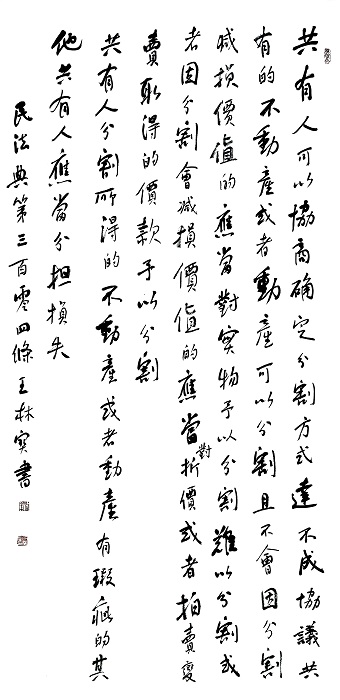 共有人可以協商确定分割方式達不成協議共
有的不動產或者動產可以分割且不會因分割
减損價值的應當對实物予以分割難以分割或
者因分割會减損價值的應當對折價或者拍賣變
賣取得的價款予以分割
共有人分割所得的不動產或者動產有瑕疵的其
他共有人應當分担損失
民法典第三百零四條王林实書